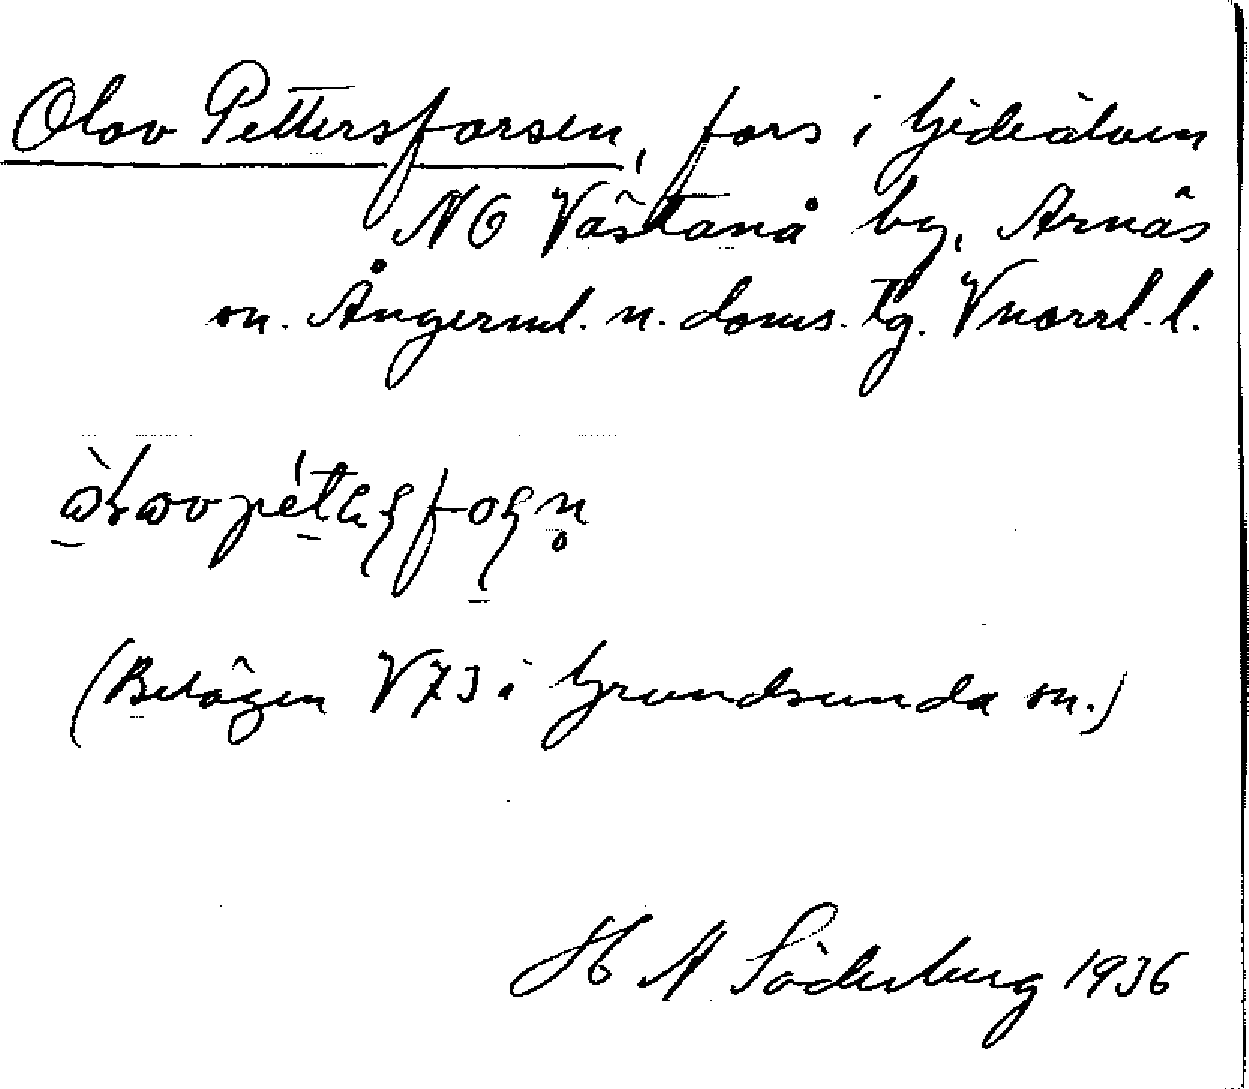 Olov Pettersforsen, fors i Gideälven
NO Västanå by, Arnäs
sn. Ångerml. n. doms. tg. Vnorrl. l.
(Belägen V73 i Grundsunda sn.)
H A Söderberg 1936